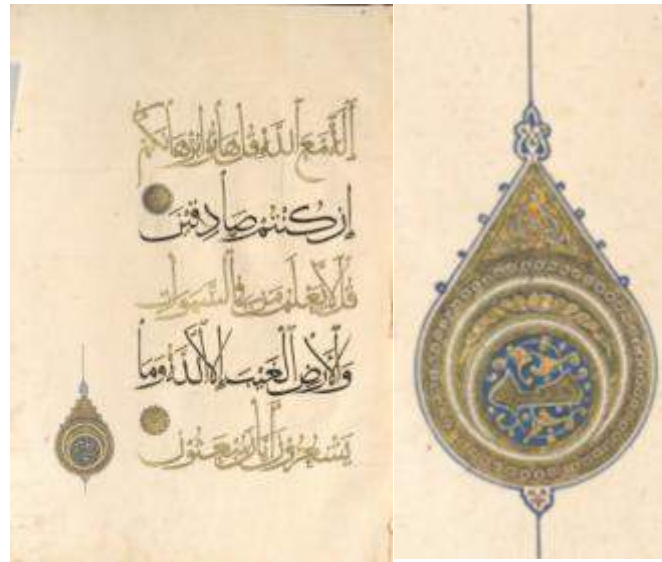 أإله مع الله قل هاتوا برهانكم
إن كنتم صادقين
قل لا يعلم من في السموات
والأرض الغيب إلا الله وما
يشعرون أيان يبعثون